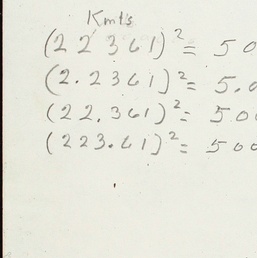 Kmt's
(22361)² = 50
(2.2361)² = 5.0
(22.361)² = 500
(223.61)² = 500